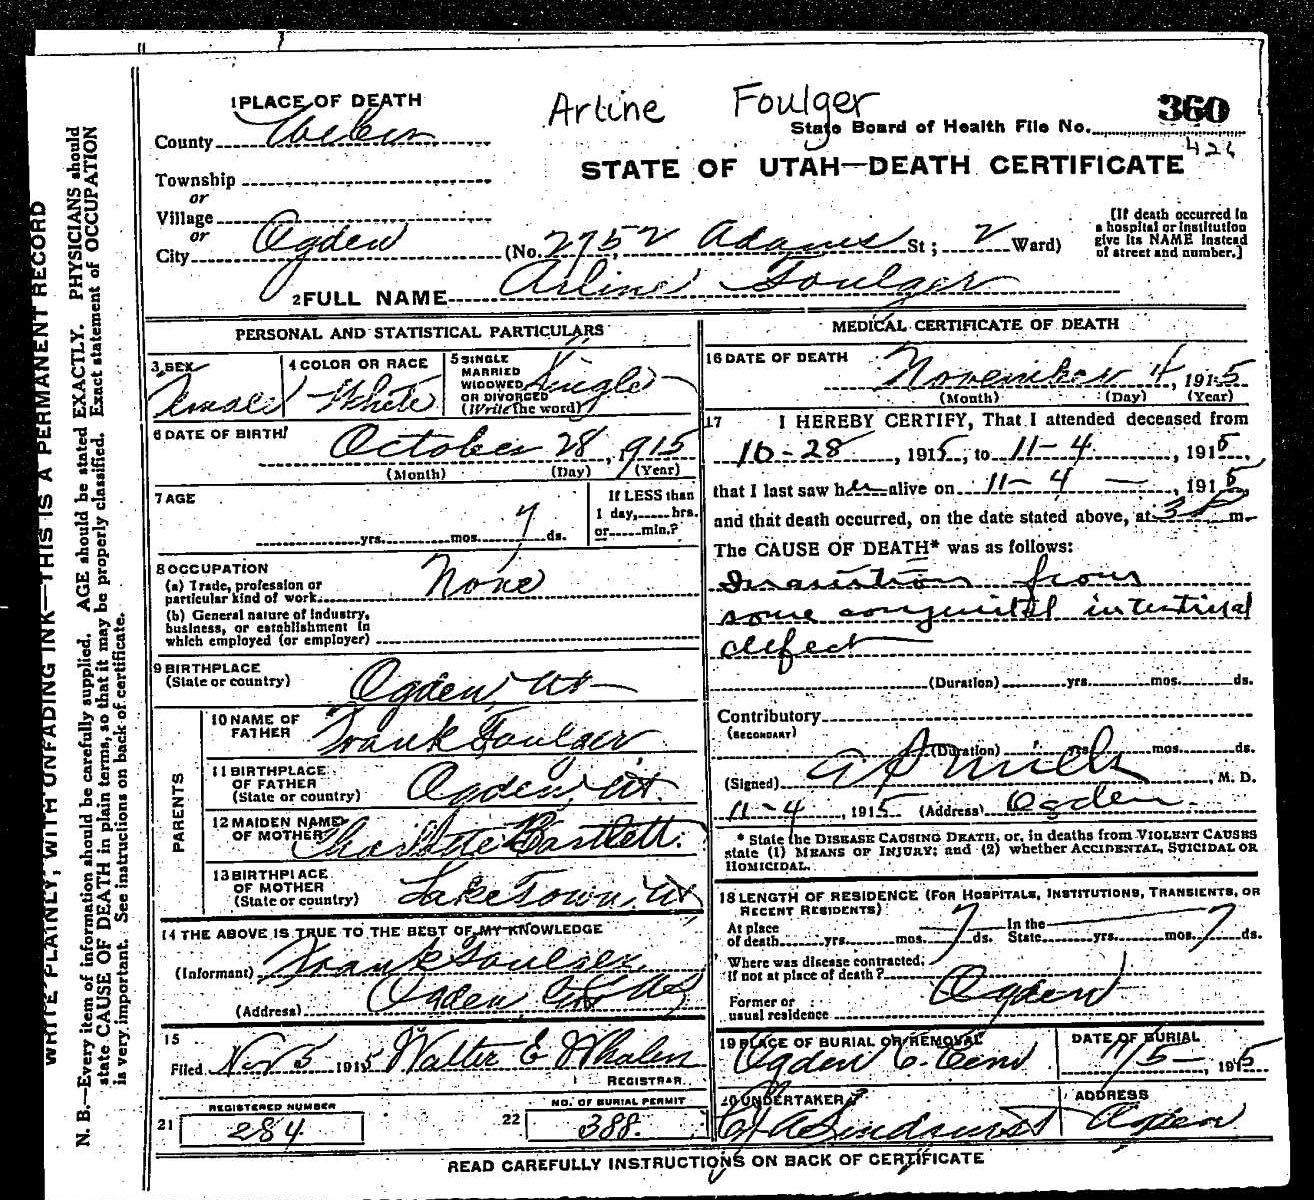 Arline Foulger
360
State Board of Health File No.
426
1 PLACE OF DEATH
County Weber
STATE OF UTAH—DEATH CERTIFICATE
Township
or
Village
or
City Ogden (No. 2752 Adams St; 2 Ward)
[If death occurred in a hospital or institution give its NAME instead of street and number.]
2 FULL NAME Arline Foulger
PERSONAL AND STATISTICAL PARTICULARS
3 SEX Female
4 COLOR OR RACE White
5 SINGLE MARRIED WIDOWED OR DIVORCED (Write the word) Single
6 DATE OF BIRTH October 28, 1915
(Month) (Day) (Year)
7 AGE
yrs. mos. 7 ds.
If LESS than 1 day, hrs. or min.?
8 OCCUPATION None
(a) Trade, profession or particular kind of work.
(b) General nature of industry, business, or establishment in which employed (or employer)
9 BIRTHPLACE (State or country) Ogden, Ut
PARENTS
10 NAME OF FATHER Frank Foulger
11 BIRTHPLACE OF FATHER (State or country) Ogden, Ut.
12 MAIDEN NAME OF MOTHER Charlotte Bartlett.
13 BIRTHPLACE OF MOTHER (State or country) Lake Town, Ut
14 THE ABOVE IS TRUE TO THE BEST OF MY KNOWLEDGE
(Informant) Frank Foulger
(Address) Ogden
15
Filed Nov 5 1915 Walter E Whalen
REGISTRAR.
REGISTERED NUMBER
21 284
NO. OF BURIAL PERMIT
22 388.
MEDICAL CERTIFICATE OF DEATH
16 DATE OF DEATH
November 4, 1915
(Month) (Day) (Year)
17 I HEREBY CERTIFY, That I attended deceased from
10-28, 1915, to 11-4, 1915,
that I last saw her alive on 11-4, 1915
and that death occurred, on the date stated above, at 3 P m.
The CAUSE OF DEATH* was as follows:
Inanition from
some congenital intestinal
defect
(Duration) yrs. mos. ds.
Contributory
(SECONDARY)
(Duration) yrs. mos. ds.
(Signed) M. D.
11-4, 1915 (Address) Ogden
* State the DISEASE CAUSING DEATH, or, in deaths from VIOLENT CAUSES
state (1) MEANS OF INJURY; and (2) whether ACCIDENTAL, SUICIDAL OR
HOMICIDAL.
18 LENGTH OF RESIDENCE (FOR HOSPITALS, INSTITUTIONS, TRANSIENTS, OR
RECENT RESIDENTS)
At place of death yrs. mos. 7 ds. In the State yrs. mos. 7 ds.
Where was disease contracted, if not at place of death?
Former or usual residence Ogden
19 PLACE OF BURIAL OR REMOVAL Ogden C. Cem
DATE OF BURIAL 11/5 1915
20 UNDERTAKER Lindquist
ADDRESS Ogden
READ CAREFULLY INSTRUCTIONS ON BACK OF CERTIFICATE
WRITE PLAINLY, WITH UNFADING INK—THIS IS A PERMANENT RECORD
N. B.—Every item of information should be carefully supplied. AGE should be stated EXACTLY. PHYSICIANS should
state CAUSE OF DEATH in plain terms, so that it may be properly classified. Exact statement of OCCUPATION
is very important. See instructions on back of certificate.